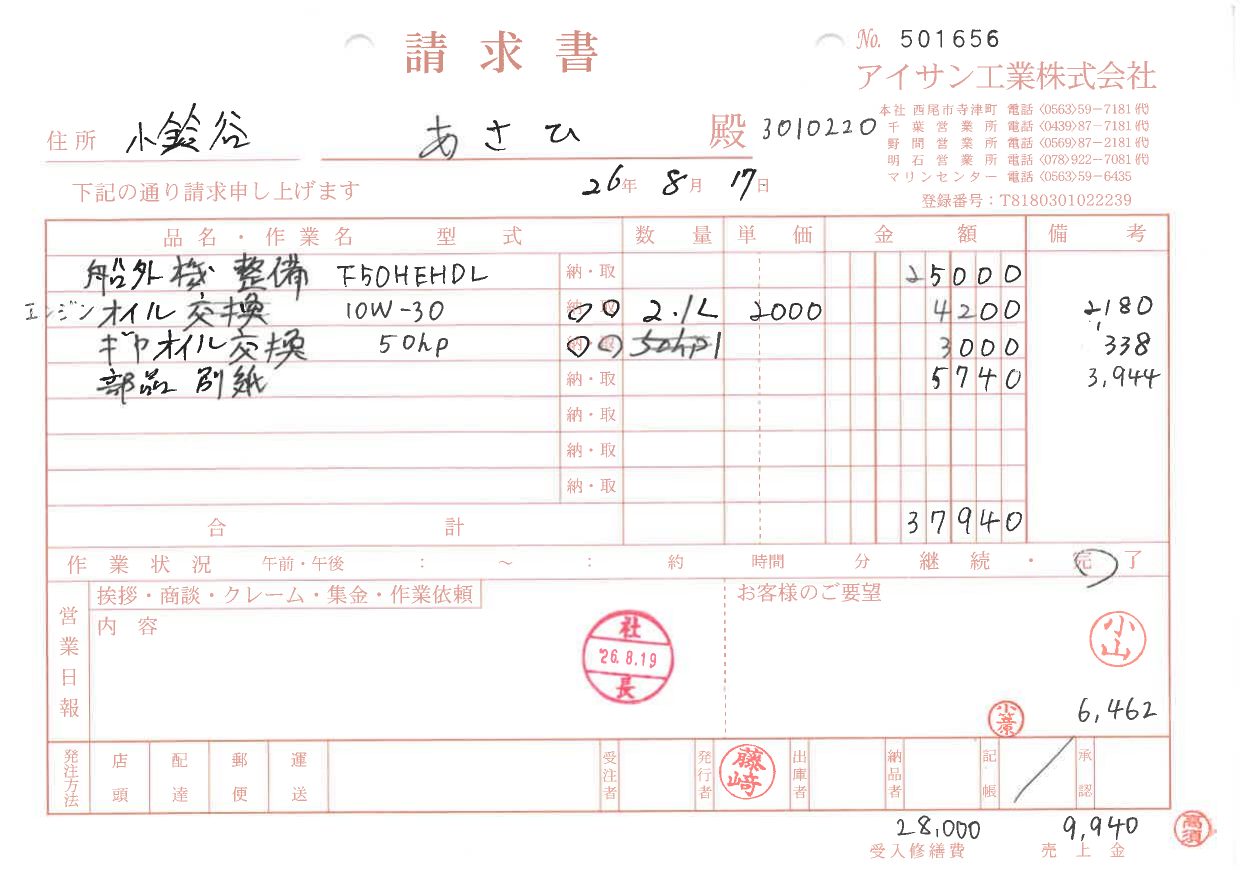 請求書
No. 501656
アイサン工業株式会社
本社 西尾市寺津町 電話〈0563〉59-7181㈹
千葉営業所 電話〈0439〉87-7181㈹
野間営業所 電話〈0569〉87-2181㈹
明石営業所 電話〈078〉922-7081㈹
マリンセンター 電話〈0563〉59-6435
登録番号：T8180301022239
住所 小鈴谷 あさひ 殿 3010220
下記の通り請求申し上げます 26年 8月 17日
品名・作業名 型式 数量 単価 金額 備考
船外機 整備 F50HEHDL 納・取 25000
エンジンオイル 交換 10W-30 納・取 2.1L 2000 4200 2,180
ギヤオイル交換 50hp 納・取 50hp 1 3000 338
部品 別紙 納・取 5740 3,944
納・取
納・取
納・取
合計 37940
作業状況 午前・午後 : 〜 : 約 時間 分 継続・完了
営業日報
挨拶・商談・クレーム・集金・作業依頼
内容
お客様のご要望
社
'26.8.19
長
小山
6,462
発注方法 店頭 配達 郵便 運送 受注者 発行者 藤崎 出庫者 納品者 記帳 承認
28,000 9,940
受入修繕費 売上金
高須